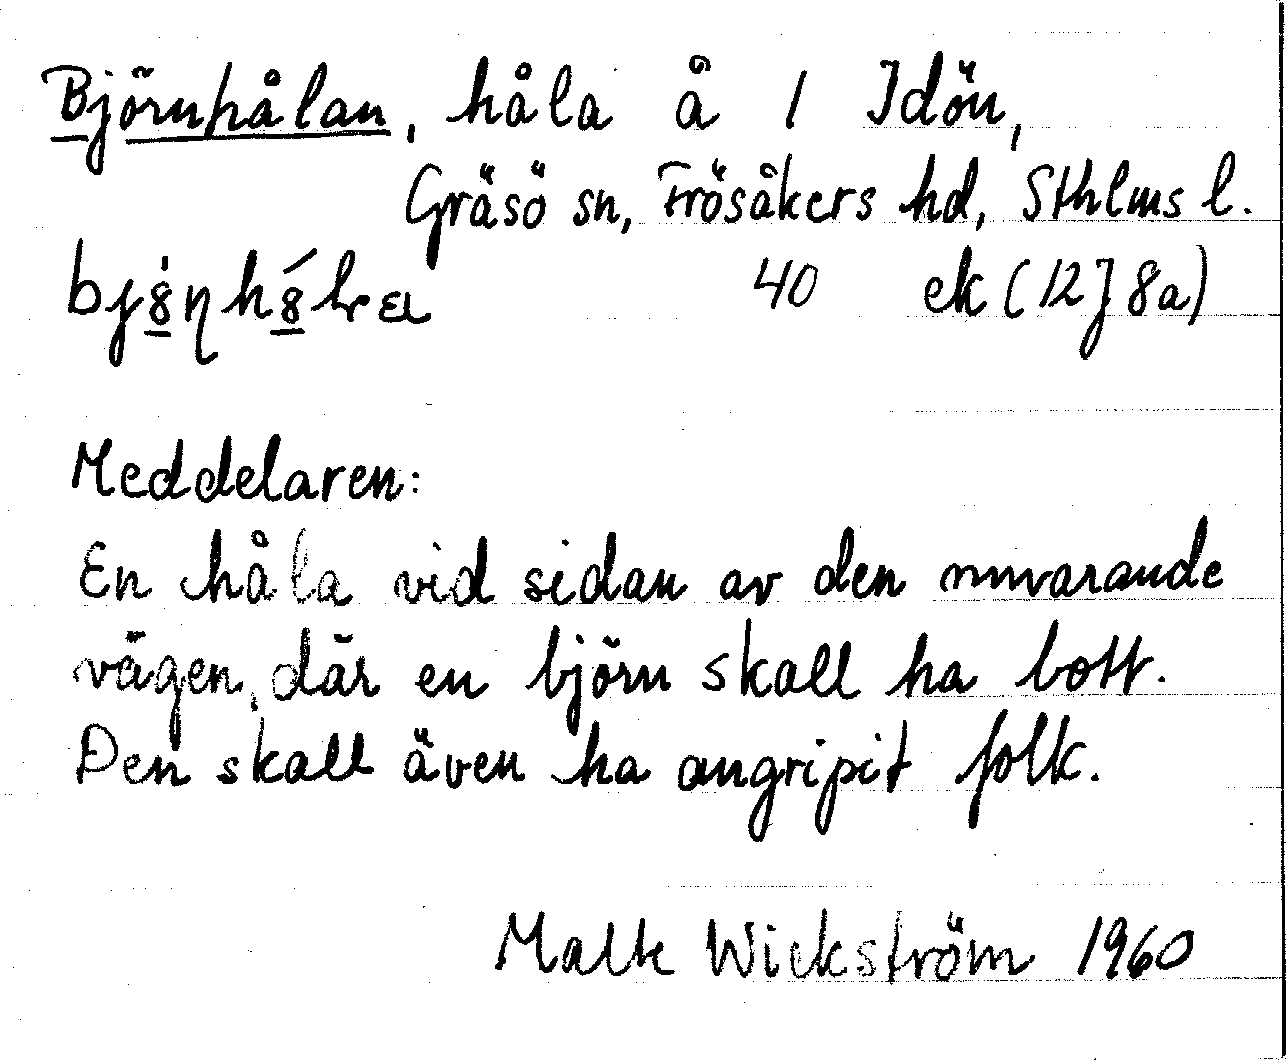 Björnhålan, håla å 1 Idön,
Gräsö sn, Frösåkers hd, Sthlms l.
40 ek (12J 8a)
Meddelaren:
En håla vid sidan av den nuvarande
vägen, där en björn skall ha bott.
Den skall även ha angripit folk.
Malte Wickström 1960